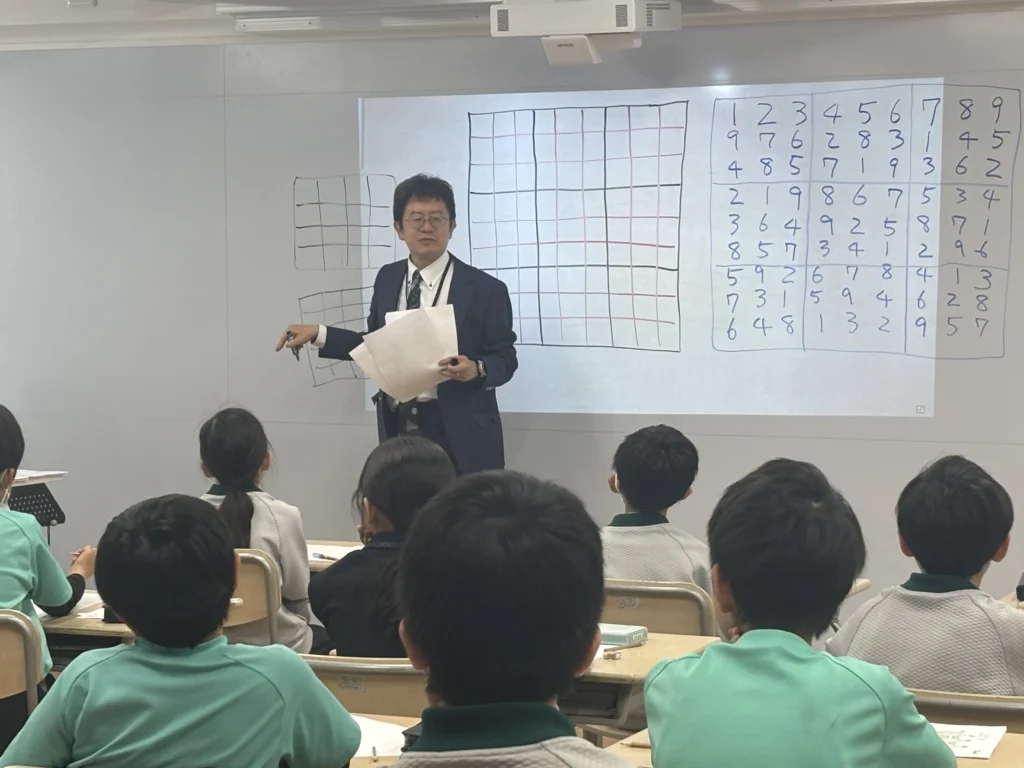 EPSON
1 2 3 4 5 6 7 8 9
9 7 6 2 8 3 1 4 5
4 8 5 7 1 9 3 6 2
2 1 9 8 6 7 5 3 4
3 6 4 9 2 5 8 7 1
8 5 7 3 4 1 2 9 6
5 9 2 6 7 8 4 1 3
7 3 1 5 9 4 6 2 8
6 4 8 1 3 2 9 5 7